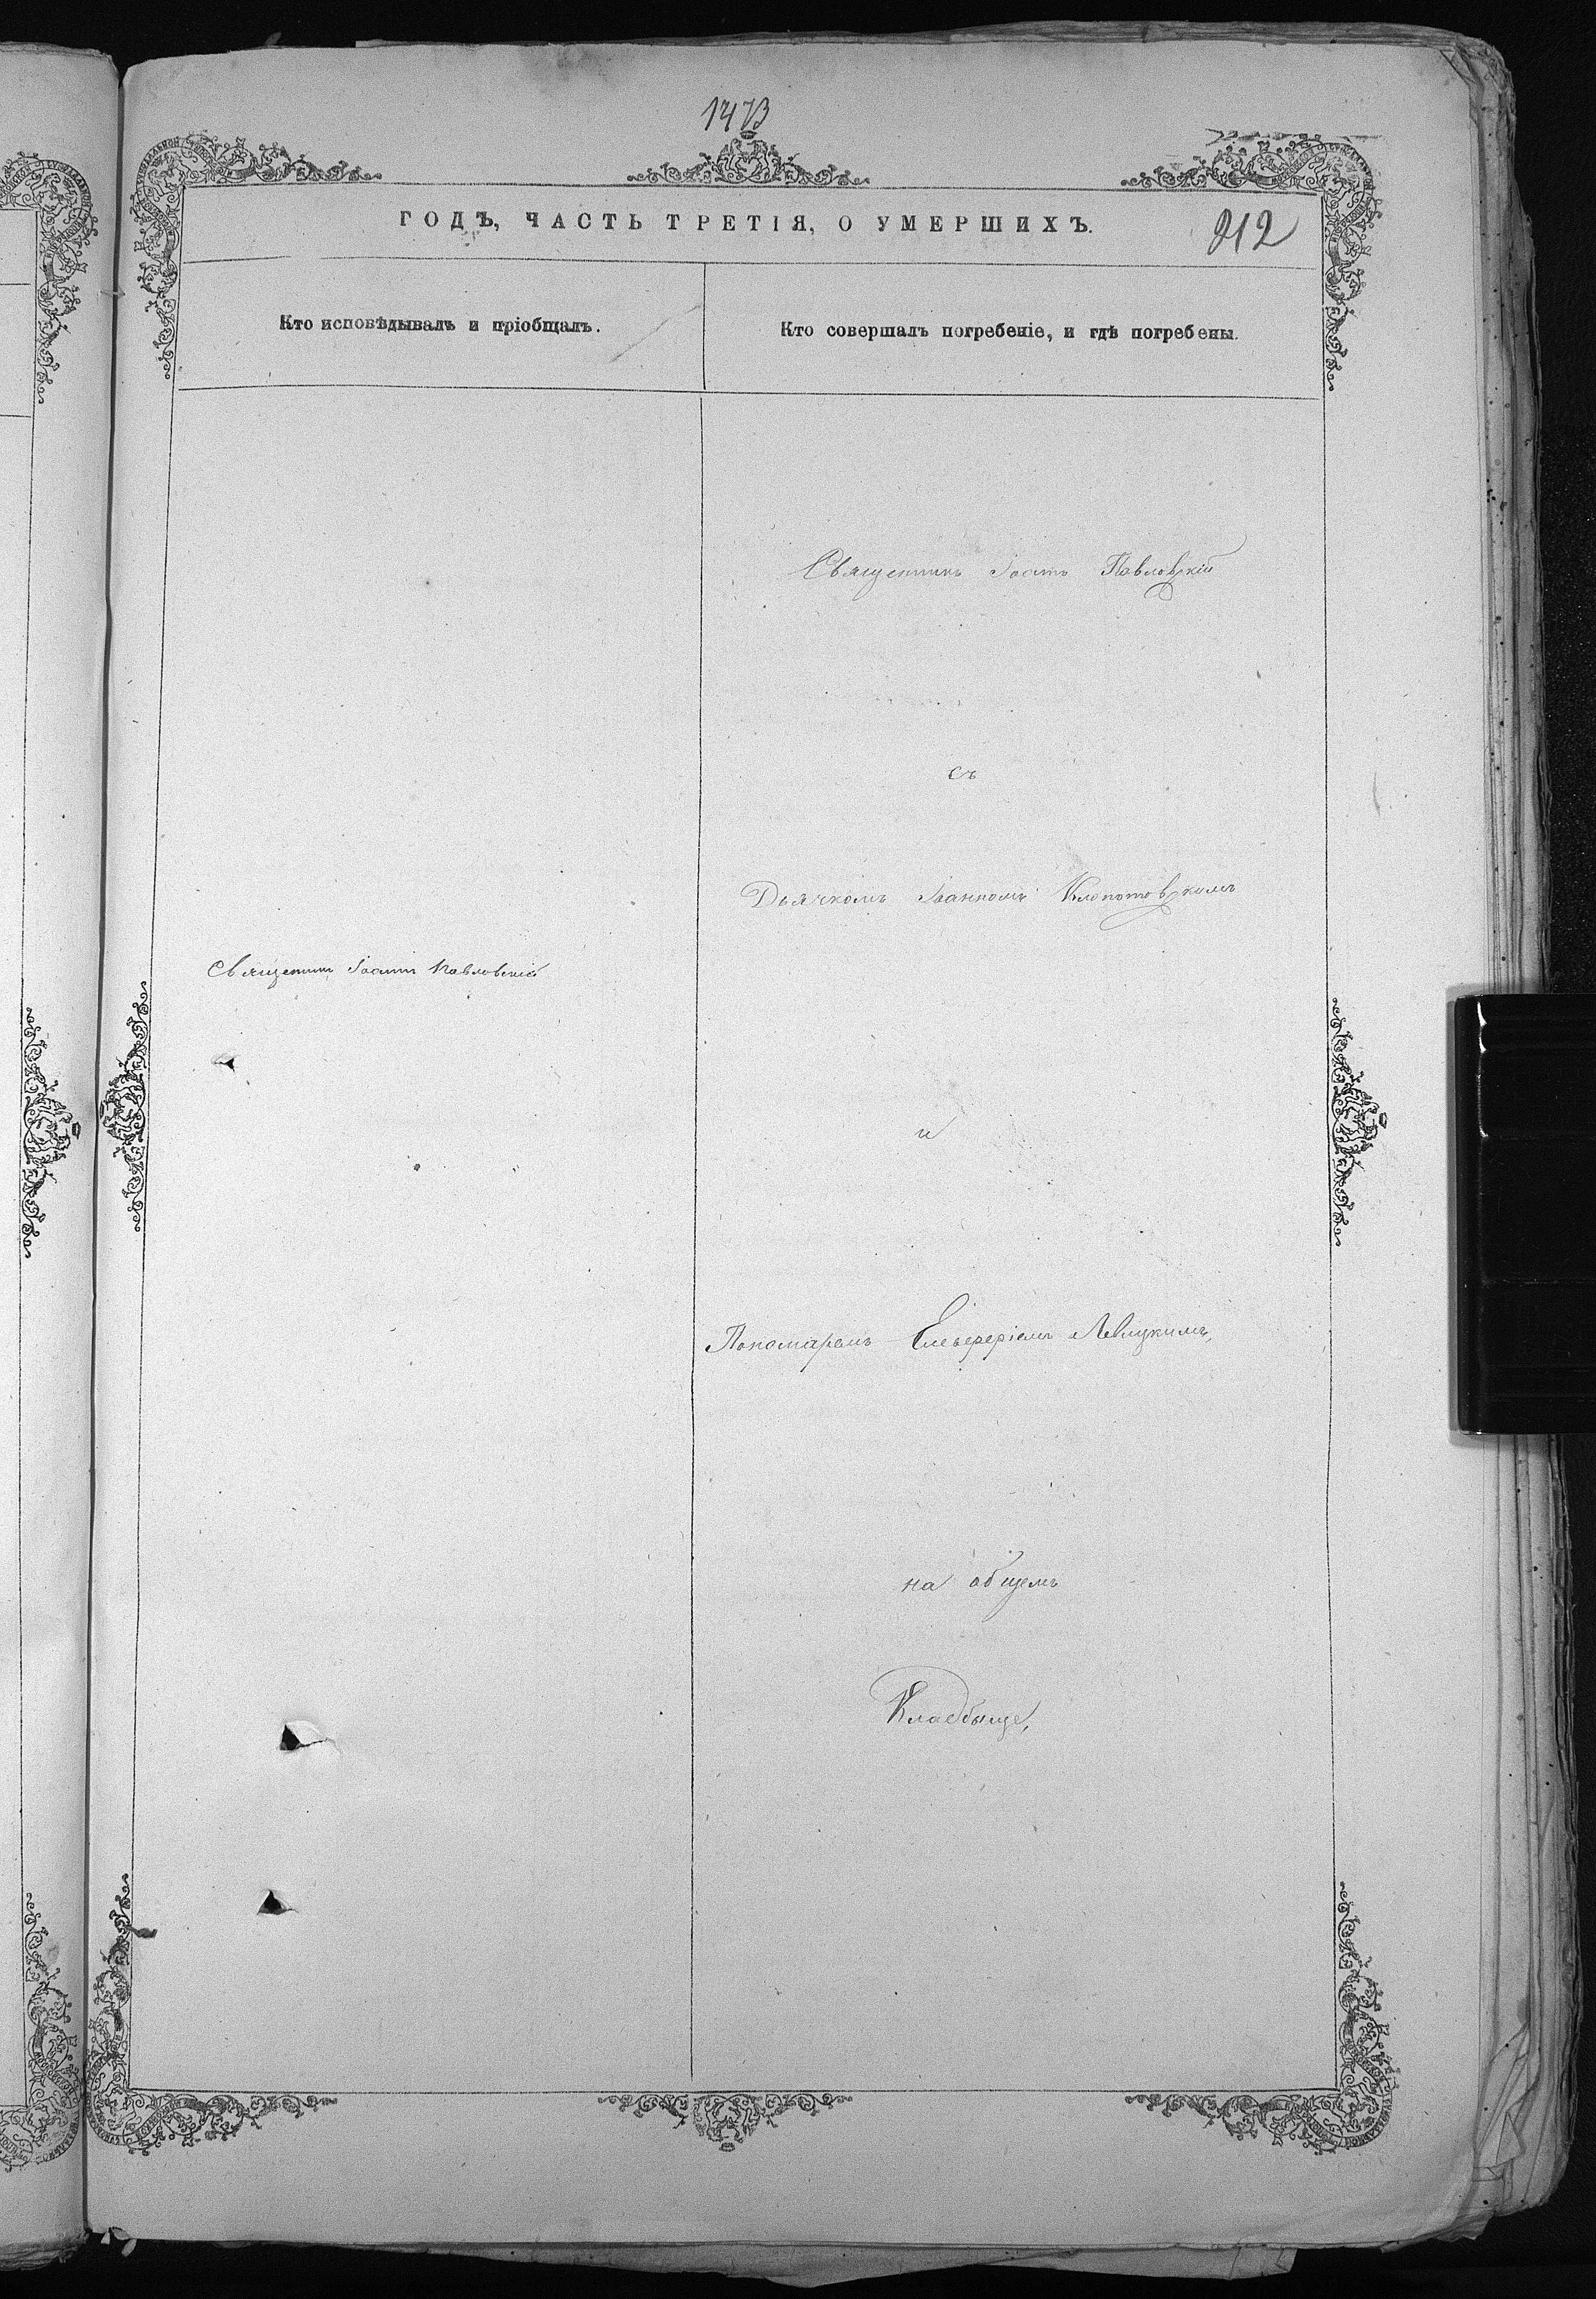 1473
ГОДЪ, ЧАСТЬ ТРЕТІЯ, О УМЕРШИХЪ.
212
Кто исповѣдывалъ и пріобщалъ.
Кто совершалъ погребеніе, и гдѣ погребены.
Священникъ Іоаннъ Павловскій
съ
Дьячкомъ Іоанномъ Клопотовскимъ
Священникъ Іоаннъ Павловскій
и
Пономаремъ Елевферіемъ Левицкимъ,
на общемъ
Кладбыще,